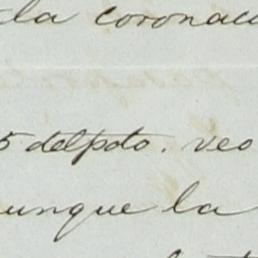 la coronac
5 del pdto. veo
unque la